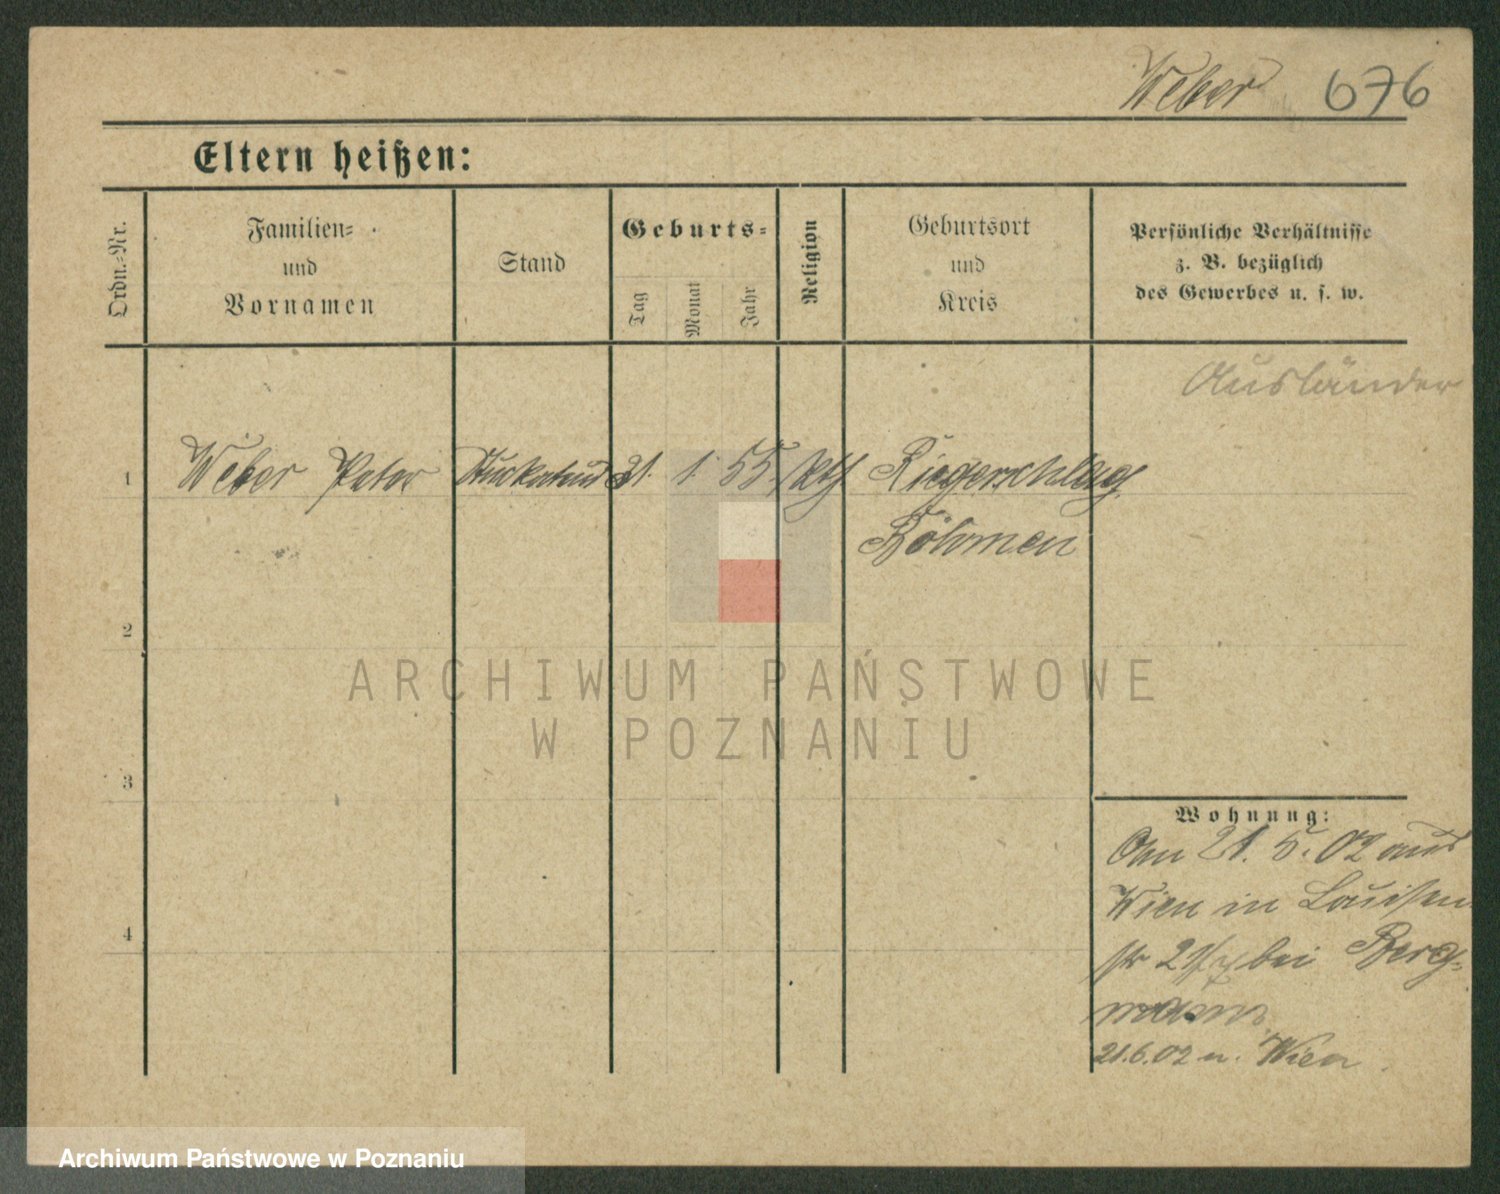 Weber 676
Eltern heißen:
Ordn.-Nr.
Familien-
und
Vornamen
Stand
Geburts-
Tag
Monat
Jahr
Religion
Geburtsort
und
Kreis
Persönliche Verhältnisse
z. B. bezüglich
des Gewerbes u. s. w.
Ausländer
1 Weber Peter 1. 55 kth Riegerschlag
Böhmen
2
3
4
Wohnung:
Am 21. 5. 02 aus
Wien in Louisen
str bei Berg-
mann
21.6.02 n. Wien
ARCHIWUM PAŃSTWOWE
W POZNANIU
Archiwum Państwowe w Poznaniu